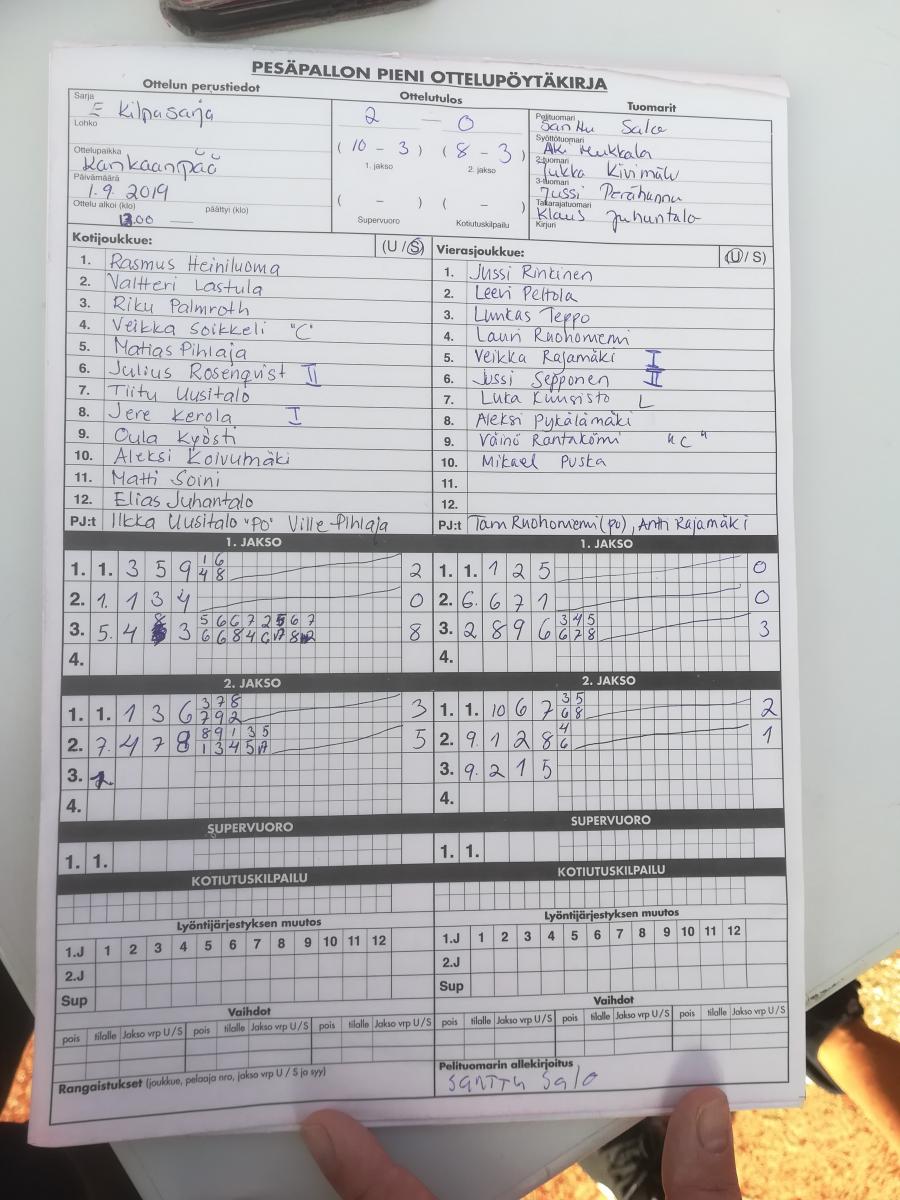 PESÄPALLON PIENI OTTELUPÖYTÄKIRJA
Ottelun perustiedot
Ottelutulos
Tuomarit
Sarja
E Kilpasarja
Lohko
Ottelupaikka
Kankaanpää
Päivämäärä
1.9.2019
Ottelu alkoi (klo) päättyi (klo)
2 — 0
( 10 - 3 ) ( 8 - 3 )
1. jakso 2. jakso
( - ) ( - )
Supervuoro Kotiutuskilpailu
Pelituomari
Salo
Syöttötuomari
2-tuomari
Jukka
3-tuomari
Jussi
Takarajatuomari
Klaus Juhantalo
Kirjuri
Kotijoukkue: (U / S)
1. Rasmus Heiniluoma
2. Valtteri Lastula
3. Riku Palmroth
4. Veikka Soikkeli "C"
5. Matias Pihlaja
6. Julius Rosenqvist II
7. Tiitu Uusitalo
8. Jere Kerola I
9. Oula Kyösti
10. Aleksi Koivumäki
11. Matti Soini
12. Elias Juhantalo
PJ:t Ilkka Uusitalo "PO" Ville Pihlaja
Vierasjoukkue: (U / S)
1. Jussi Rintinen
2. Leevi Peltola
3. Luukas Teppo
4. Lauri Ruohoniemi
5. Veikka Rajamäki I
6. Jussi Sepponen II
7. Luka Kuusisto L
8. Aleksi Pykälämäki
9. Väinö "C"
10. Mikael Puska
11.
12.
PJ:t Ruohoniemi (po), Rajamäki
1. JAKSO
1. 1. 3 5 9 1 6 2
4 8
2. 1. 1 3 4 0
3. 5. 4 8 3 5 6 6 7 2 5 6 7 8
4.
1. JAKSO
1. 1. 1 2 5 0
2. 6. 6 7 1 0
3. 2 8 9 6 3 4 5 3
6 7 8
4.
2. JAKSO
1. 1. 1 3 6 3 7 8 3
7 9 2
2. 7. 4 7 8 8 9 1 3 5 5
3.
4.
2. JAKSO
1. 1. 10 6 7 3 5 2
6 8
2. 9. 1 2 8 4 1
6
3. 9. 2 1 5
4.
SUPERVUORO
1. 1.
SUPERVUORO
1. 1.
KOTIUTUSKILPAILU
KOTIUTUSKILPAILU
Lyöntijärjestyksen muutos
1.J 1 2 3 4 5 6 7 8 9 10 11 12
2.J
Sup
Lyöntijärjestyksen muutos
1.J 1 2 3 4 5 6 7 8 9 10 11 12
2.J
Sup
Vaihdot
pois tilalle Jakso vrp U/S pois tilalle Jakso vrp U/S pois tilalle Jakso vrp U/S
Vaihdot
pois tilalle Jakso vrp U/S pois tilalle Jakso vrp U/S pois tilalle Jakso vrp U/S
Rangaistukset (joukkue, pelaaja nro, jakso vrp U / S ja syy)
Pelituomarin allekirjoitus
Santtu Salo